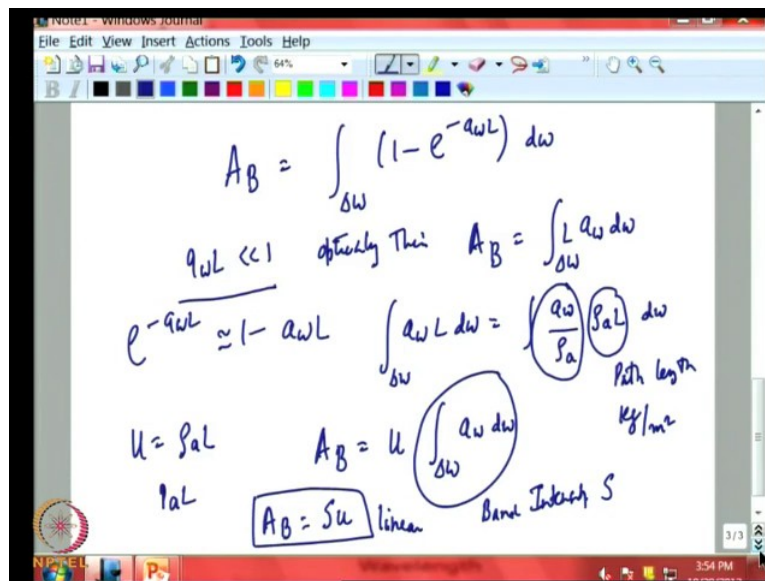 Note1 - Windows Journal
File Edit View Insert Actions Tools Help
64%
B I
A_B = ∫_{Δω} (1 - e^{-a_ω L}) dω
a_ω L << 1 optically Thin A_B = ∫_{Δω} L a_ω dω
e^{-a_ω L} ≃ 1 - a_ω L ∫_{Δω} a_ω L dω = ∫ a_ω/ρ_a ρ_a L dω
Path length
kg/m²
u = ρ_a L A_B = u ∫_{Δω} a_ω dω
ρ_a L
A_B = Su linear Band Intensity S
3/3
NPTEL
Wavelength
3:54 PM